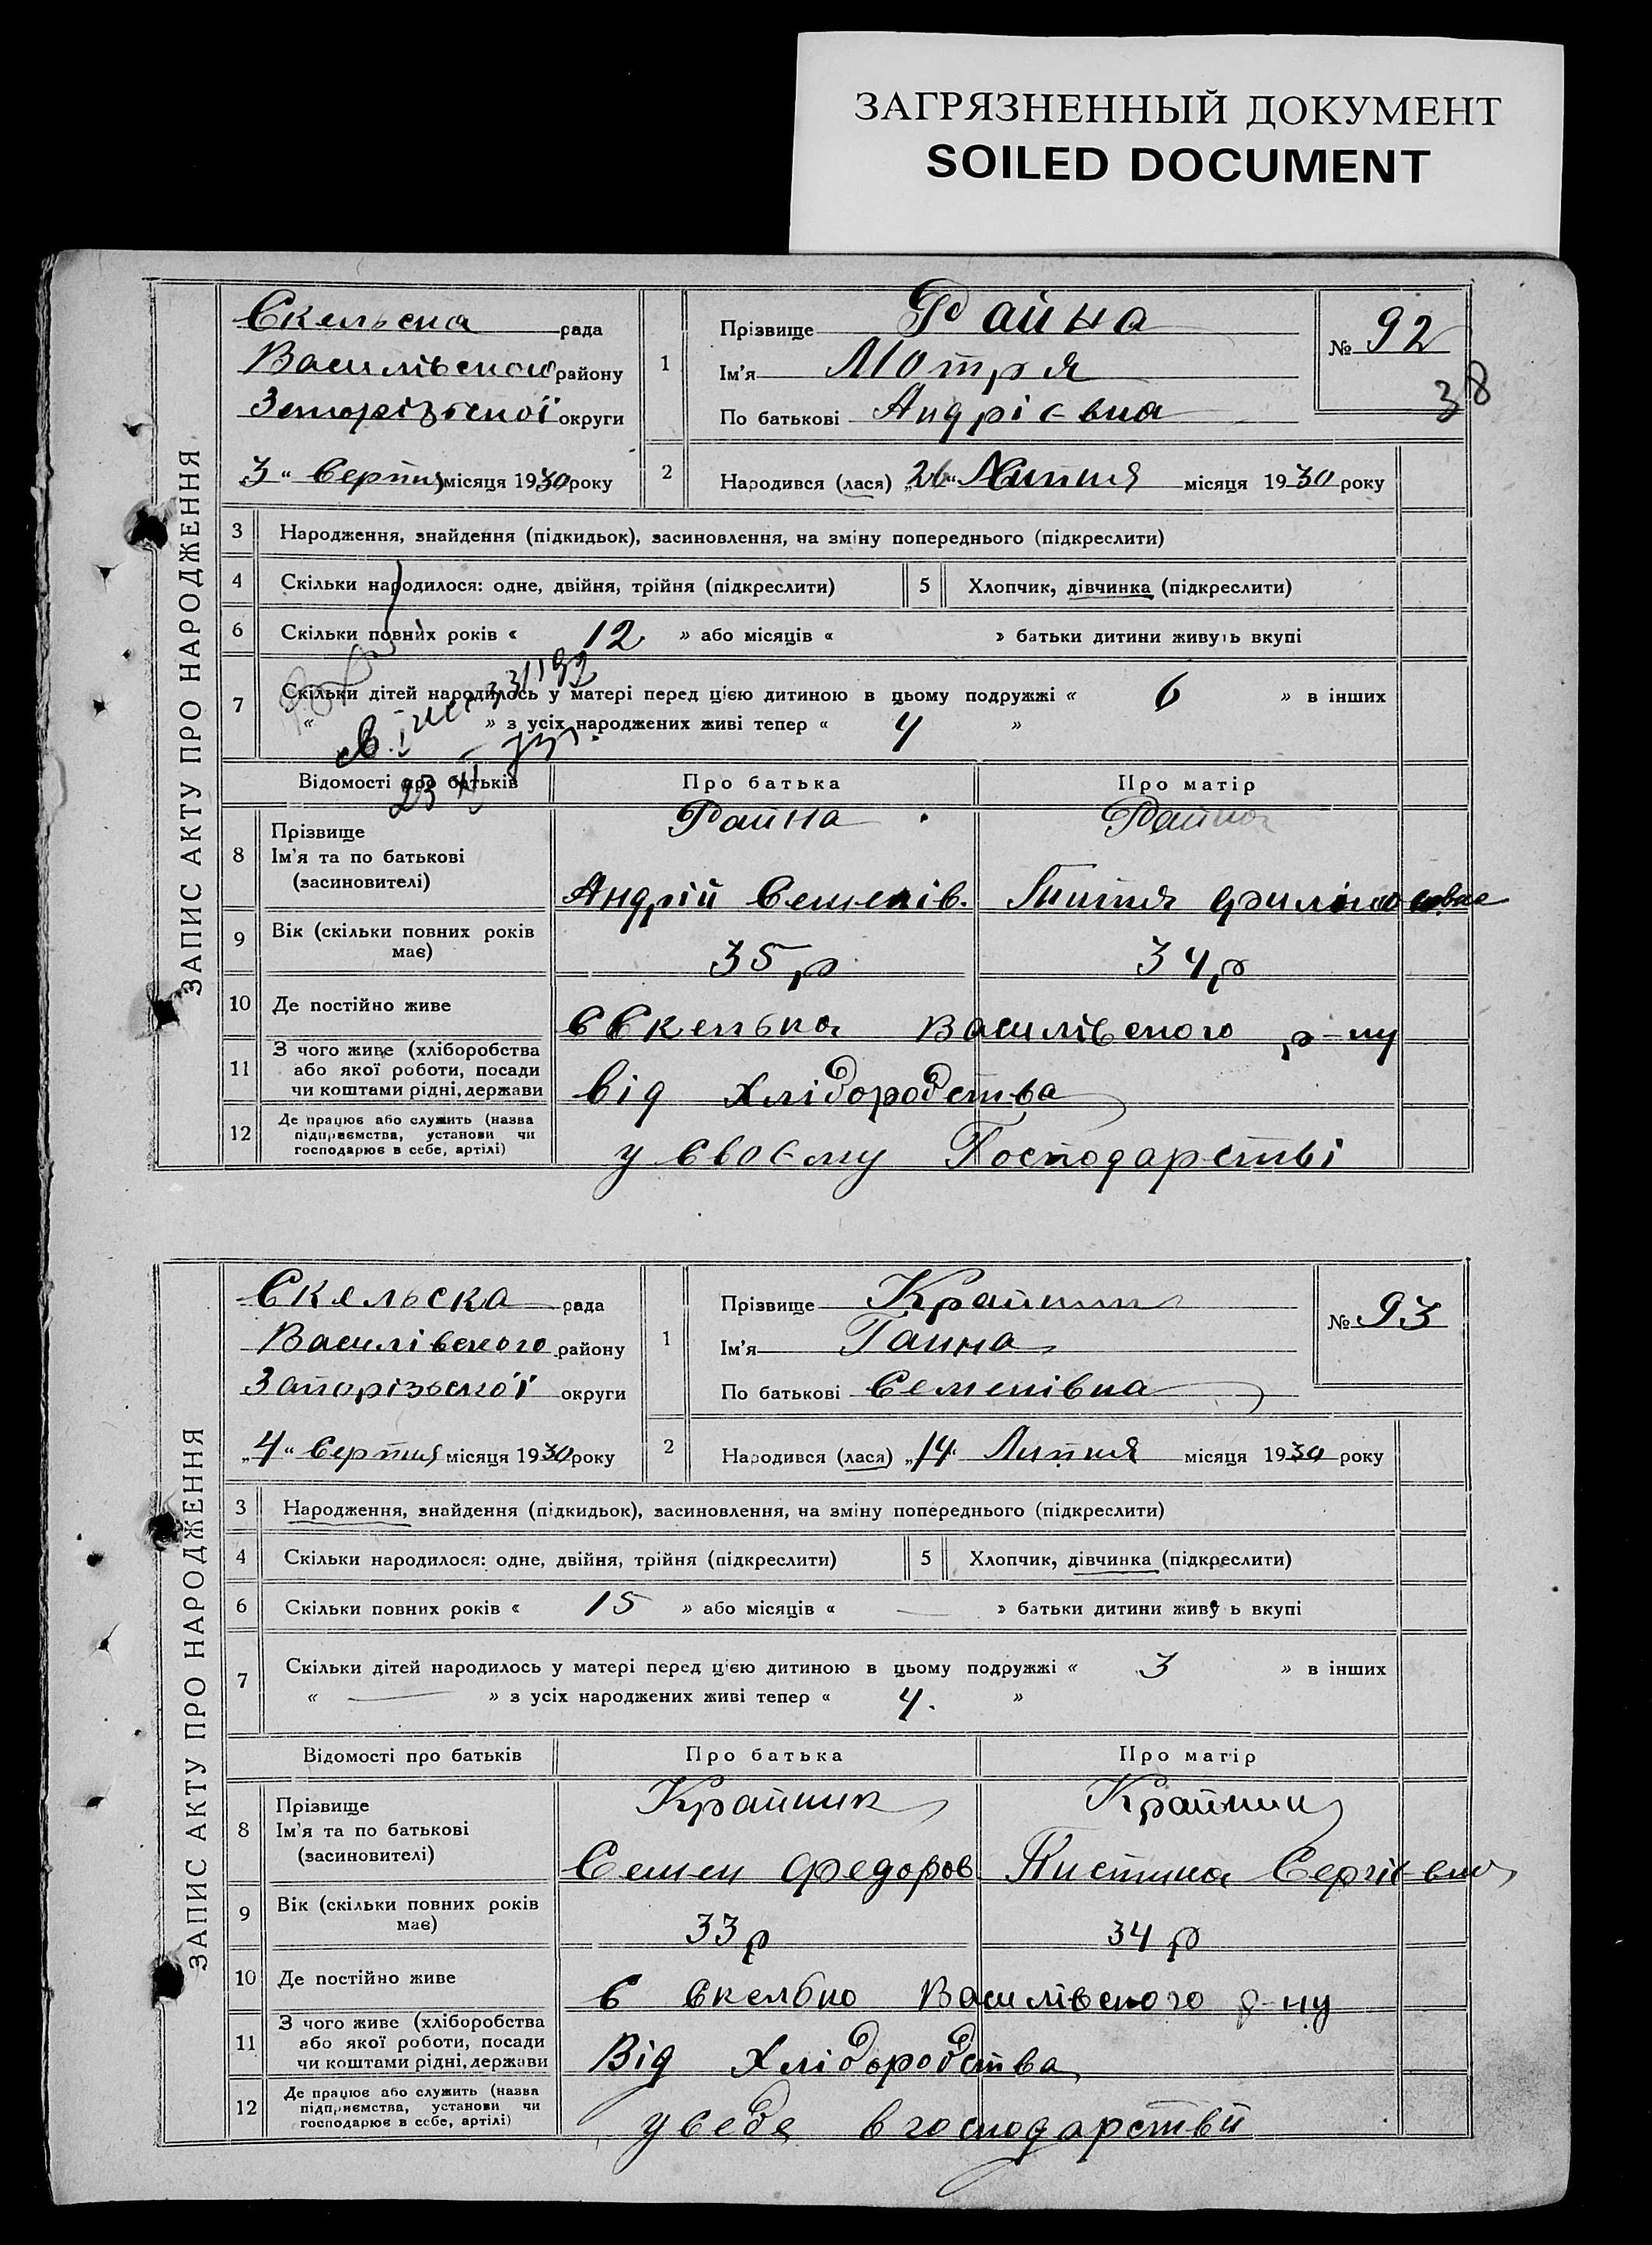 ЗАГРЯЗНЕННЫЙ ДОКУМЕНТ
SOILED DOCUMENT
ЗАПИС АКТУ ПРО НАРОДЖЕННЯ
Скельска рада
Василівского району
Запорізької округи
„3“ Серпня місяця 1930 року
1
Прізвище Файна
Ім'я Мотря
По батькові Андрієвна
№ 92
38
2
Народився (лася) „26“ Липня місяця 1930 року
3 Народження, знайдення (підкидьок), засиновлення, на зміну попереднього (підкреслити)
4 Скільки народилося: одне, двійня, трійня (підкреслити)
5 Хлопчик, дівчинка (підкреслити)
6 Скільки повних років « 12 » або місяців « » батьки дитини живуть вкупі
7 Скільки дітей народилось у матері перед цією дитиною в цьому подружжі « 6 » в інших
« » з усіх народжених живі тепер « 4 »
Відомості про батьків Про батька Про матір
8 Прізвище
Ім'я та по батькові
(засиновителі)
Файна Файна
Андрій Семенів.
9 Вік (скільки повних років має)
35 р 34 р
10 Де постійно живе
с Скелька Василівского р-ну
11 З чого живе (хліборобства або якої роботи, посади чи коштами рідні, держави
від Хліборобства
12 Де працює або служить (назва підприємства, установи чи господарює в себе, артілі)
у своєму Господарстві
ЗАПИС АКТУ ПРО НАРОДЖЕННЯ
Скельска рада
Василівского району
Запорізьської округи
„4“ Серпня місяця 1930 року
1
Прізвище Крайник
Ім'я Ганна
По батькові Семенівна
№ 93
2
Народився (лася) „14“ Липня місяця 1930 року
3 Народження, знайдення (підкидьок), засиновлення, на зміну попереднього (підкреслити)
4 Скільки народилося: одне, двійня, трійня (підкреслити)
5 Хлопчик, дівчинка (підкреслити)
6 Скільки повних років « 15 » або місяців « — » батьки дитини живуть вкупі
7 Скільки дітей народилось у матері перед цією дитиною в цьому подружжі « 3 » в інших
« — » з усіх народжених живі тепер « 4. »
Відомості про батьків Про батька Про матір
8 Прізвище
Ім'я та по батькові
(засиновителі)
Крайник Крайник
Семен Федоров Хистина Сергієвна
9 Вік (скільки повних років має)
33 р 34 р
10 Де постійно живе
с Скелько Василівского р-ну
11 З чого живе (хліборобства або якої роботи, посади чи коштами рідні, держави
Від Хліборобства
12 Де працює або служить (назва підприємства, установи чи господарює в себе, артілі)
у себе в господарстві